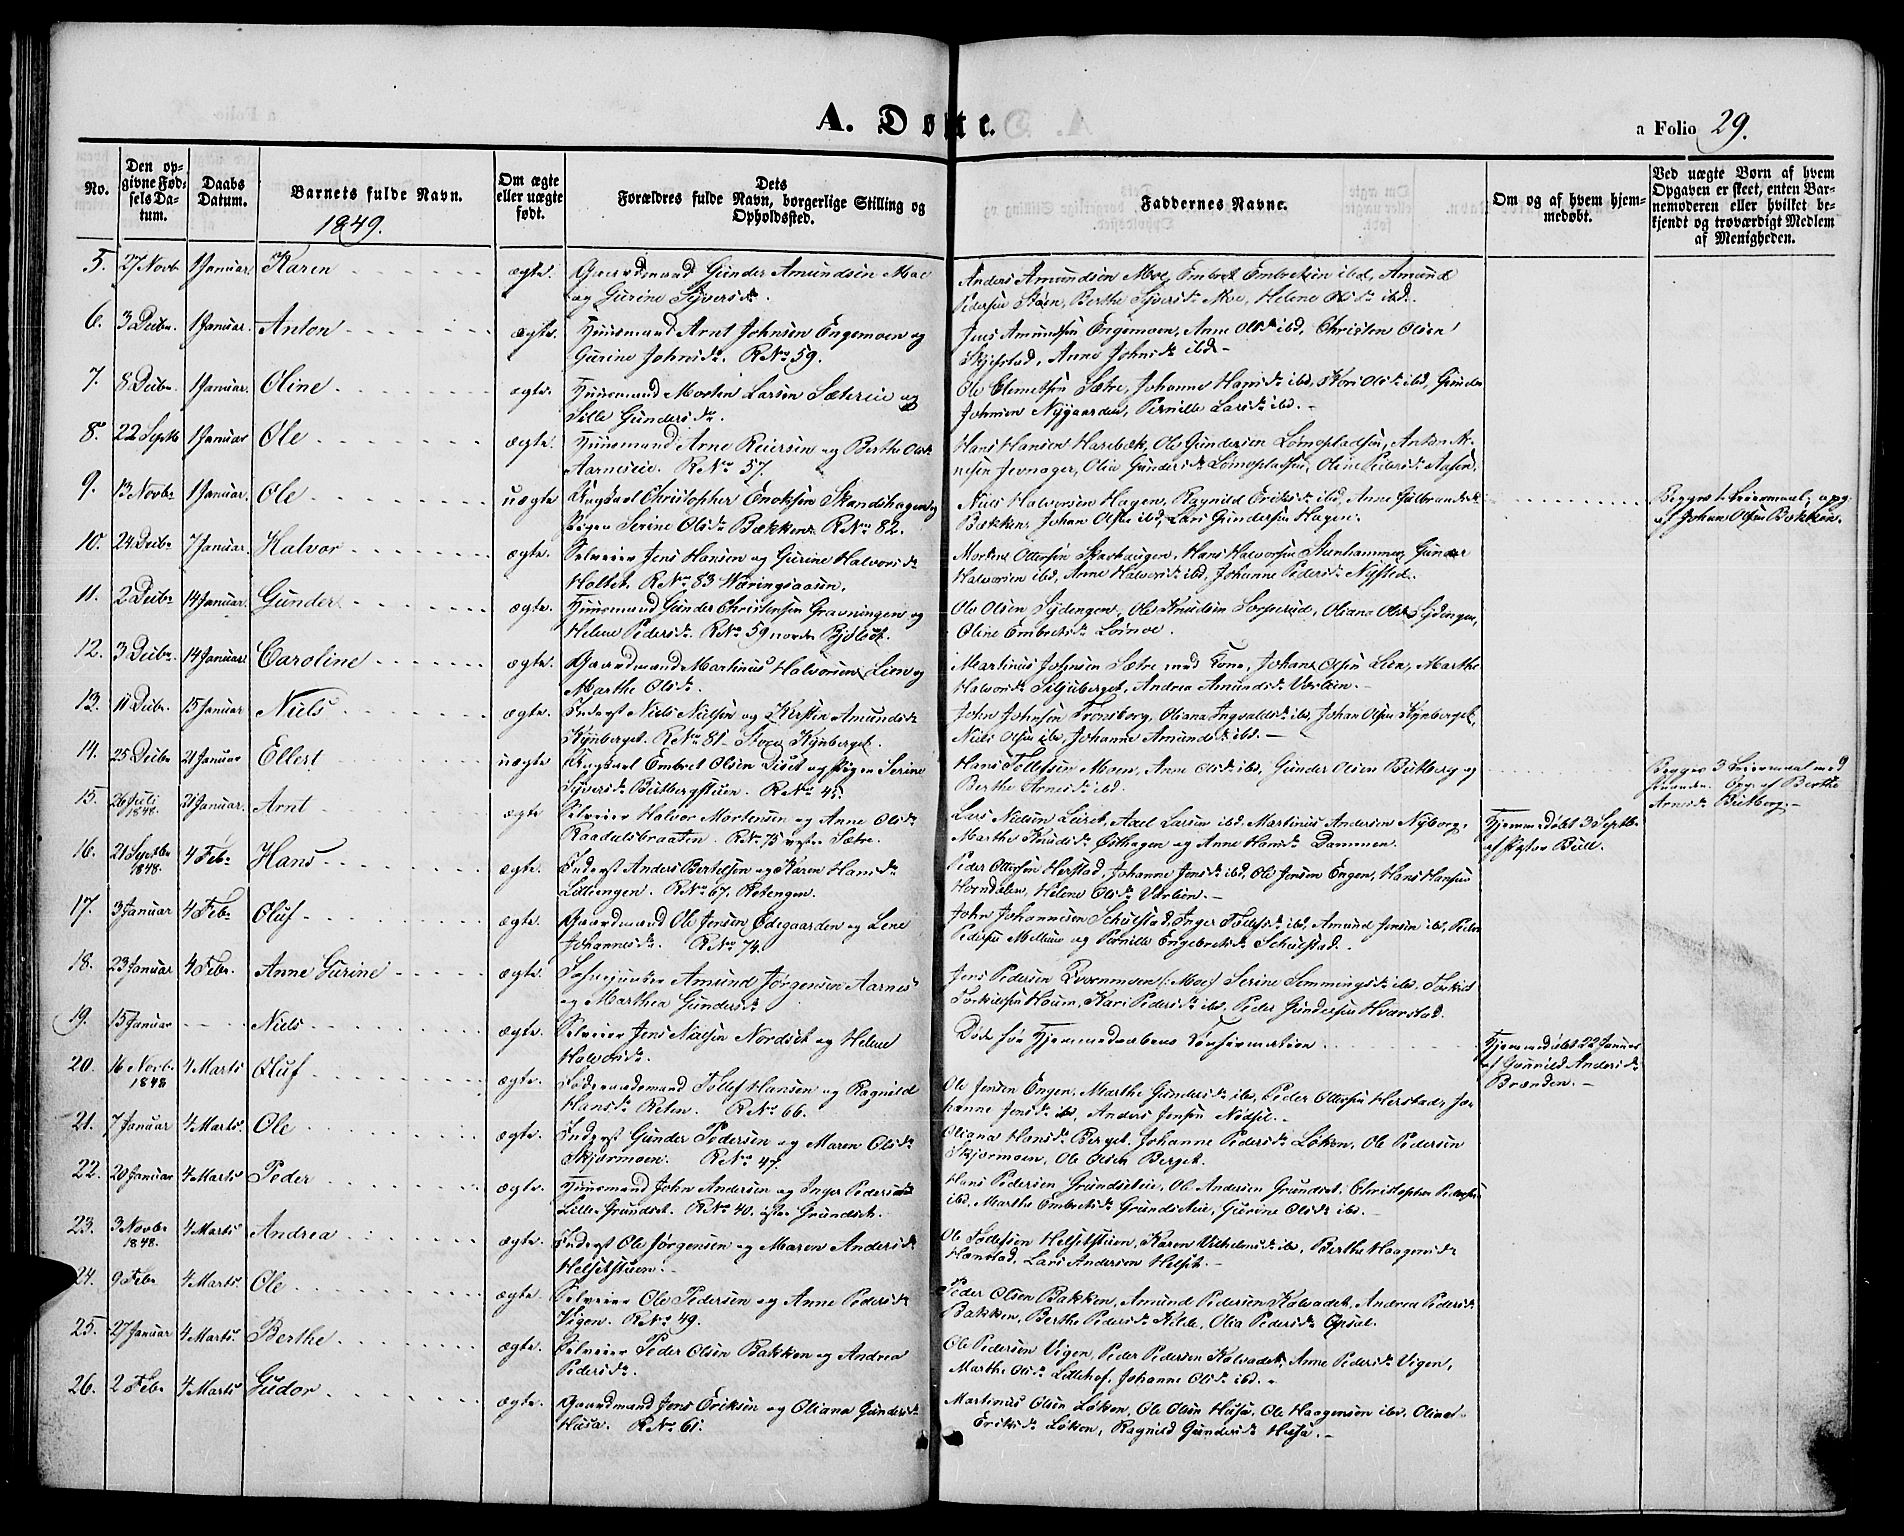 A. Døbte.
a Folio 29.
No.
Den opgivne Fødselsdatum.
Daabs Datum.
Barnets fulde Navn.
1849.
Om ægte eller uægte født.
Forældres fulde Navn, borgerlige Stilling og Opholdssted.
Faddernes Navne.
Om og af hvem hjemmedøbt.
Ved uægte Børn af hvem Opgaven er skeet, enten Barnemoderen eller hvilket bekjendt og troværdigt Medlem af Menigheden.
5. 27 Novbr 1 Januar. Karen ægte. Gaardmand Gunder Amundsen Moe
og Gurine Syversdr.
Anders Amundsen Moe, Embret Embretsen ibd, Amund
Pedersen Støen, Berthe Syversdr Moe, Helene Olsdr ibd.
6. 3 Decbr. 1 Januar. Anton ægte. Huusmand Arnt Johnsen Engemoen og
Gurine Johnsdr. RNo 59.
Jens Amundsen Engemoen, Anne Olsdr ibd, Christen Olsen
Skjefstad, Anne Johnsdr ibd
7. 8 Decbr. 1 Januar. Oline ægte. Huusmand Morten Larsen Sætereie og
Sille Gundersdr.
Ole Clemetsen Sætre, Johanne Hansdr ibd, Kari Olsdr ibd, Gunder
Johnsen Nygaarden, Pernille Larsdr ibd.
8. 22 Septb 1 Januar Ole ægte. Huusmand Arne Reiersen og Berthe Olsdr
Aarneseie. RNo 57.
Hans Hansen Harebæk, Ole Gundersen Lømopladsen, Anton Ar-
nesen Jevnager, Olia Gundersdr Lømopladsen, Oline Pedersdr Aasen.
9. 13 Novbr 1 Januar. Ole uægte Ungkarl Christopher Enoksen Skandshagen og
Pigen Serine Olsdr Bækken. RNo 82.
Niels Halvorsen Hagen, Ragnild Eriksdr ibd, Anne Gulbrandsdr
Bakken, Johan Olsen ibd, Lars Gundersen Hagen.
Begges 1. Leiermaal, opg.
af Johan Olsen Bækken.
10. 24 Decbr 7 Januar. Halvor ægte. Selveier Jens Hansen og Gurine Halvorsdr
Holtet. RNo 83 Næringsaasen.
Morten Ottersen Skarhaugen, Hans Halvorsen Stenhammer, Gunder
Halvorsen ibd, Anne Halvorsdr ibd, Johanne Pedersdr Nysted.
11. 2 Decbr 14 Januar. Gunder ægte. Huusmand Gunder Christensen Gravningen og
Helene Pedersdr. RNo 59 nordre Bjølset.
Ole Olsen Sydengen, Ole Knudsen Sorperud, Oliana Olsdr Sydengen,
Oline Embretsdr Lømoe.
12. 3 Decbr. 14 Januar. Caroline ægte. Gaardmand Martinus Halvorsen Lien og
Marthe Olsdr.
Martinus Johnsen Sætre med Kone, Johan Olsen Lien, Marthe
Halvorsdr Siljuberget, Andrea Amundsdr Varlien.
13. 11 Decbr. 15 Januar Niels ægte. Inderst Niels Nielsen og Kirsten Amundsdr
Kynberget. RNo 81 Store Kynberget.
John Johnsen Tronsborg, Oliana Ingvaldsdr ibd, Johan Olsen Kynberget,
Niels Olsen ibd, Johanne Amundsdr ibd.
14. 25 Decbr 21 Januar Ellert uægte Ungkarl Embret Olsen Diset og Pigen Serine
Syversdr Butbergstuen. RNo 45.
Hans Tollefsen Moen, Anne Olsdr ibd, Gunder Olsen Butberg og
Berthe Arnesdr ibd.
Begges 3 Leiermaal med
hinanden. Opg. af Berthe
Arnesdr Butberg.
15. 26 Juli 1848. 21 Januar. Arnt ægte Selveier Halvor Mortensen og Anne Olsdr
Raadelsbraaten. RNo 75 vestre Sætre.
Lars Nielsen Luret, Axel Larsen ibd, Martinus Andersen Nyborg,
Marthe Knudsdr Østhagen og Anne Hansdr Dammen.
Hjemmedøbt 3 Septbr
af Pastor Bull.
16. 21 Septbr 1848. 4 Febr Hans ægte. Inderst Anders Bertelsen og Karen Hansdr
Lillengen. RNo 67. Retengen.
Peder Ottersen Herstad, Johanne Jensdr ibd, Ole Jensen Engen, Hans Hansen
Hovdalen, Helene Olsdr Varlien.
17. 3 Januar 4 Febr Oluf ægte. Gaardmand Ole Jensen Ødegaarden og Lene
Johannesdr. RNo 74.
John Johannesen Schulstad, Inger Tollefsdr ibd, Amund Jensen ibd, Peder
Pedersen Mellum og Pernille Engebretsdr Schulstad.
18. 23 Januar 4 Febr. Anne Gurine ægte. Amund Jørgensen Aarnes
og Marthea Gundersdr
Jens Pedersen Qvernmoen (: Moe) Serine Semmingsdr ibd, Torkild
Torkildsen Houm, Kari Pedersdr ibd, Peder Gundersen Hvarstad.
19. 15 Januar Niels ægte. Selveier Jens Nielsen Nordset og Helene
Halvorsdr.
Døde før Hjemmedaabens Confirmation.
Hjemmedøbt 22 Januar
af Gunnild Andersdr
Brænden.
20. 16 Novbr 1848 4 Marts Oluf ægte. Føderaadsmand Tollef Hansen og Ragnild
Hansdr Reten. RNo 66.
Ole Jensen Engen, Marthe Gundersdr ibd, Peder Ottersen Herstad, Jo-
hanne Jensdr ibd, Anders Jensen Nødset.
21. 7 Januar 4 Marts. Ole ægte. Inderst Gunder Pedersen og Maren Olsdr
Skjærmoen. RNo 47.
Oliana Hansdr Berget, Johanne Pedersdr Løken, Ole Pedersen
Skjærmoen, Ole Olsen Berget.
22. 20 Januar 4 Marts Peder ægte. Huusmand John Andersen og Inger Pedersdr
Lille Grundset. RNo 40. østre Grundset.
Hans Pedersen Grundseteie, Ole Andersen Grundset, Christopher Pedersen
ibd, Marthe Embretsdr Grundseteie, Gurine Olsdr ibd.
23. 3 Novbr 1848. 4 Marts Andrea ægte. Inderst Ole Jørgensen og Maren Andersdr
Helsetstuen.
Ole Tollefsen Helsetstuen, Karen Vilhelmsdr ibd, Berthe Haagensdr
Hanstad, Lars Andersen Helset.
24. 9 Febr 4 Marts. Ole ægte. Selveier Ole Pedersen og Anne Pedersdr
Vigen. RNo 49.
Peder Olsen Bakken, Amund Pedersen Kalvadet, Andrea Pedersdr
Bakken, Berthe Pedersdr Kilde, Olia Pedersdr Opsal.
25. 27 Januar 4 Marts. Berthe ægte. Selveier Peder Olsen Bakken og Andrea
Pedersdr.
Ole Pedersen Vigen, Peder Pedersen Kalvadet, Anne Pedersdr Vigen,
Marthe Olsdr Lillehof, Johanne Olsdr ibd.
26. 2 Febr 4 Marts Gudor ægte. Gaardmand Jens Eriksen og Oliana Gundersdr
Husa. RNo 61.
Martinus Olsen Løken, Ole Olsen Husa, Ole Haagensen ibd, Olina
Eriksdr Løken, Ragnild Gundersdr Husa.